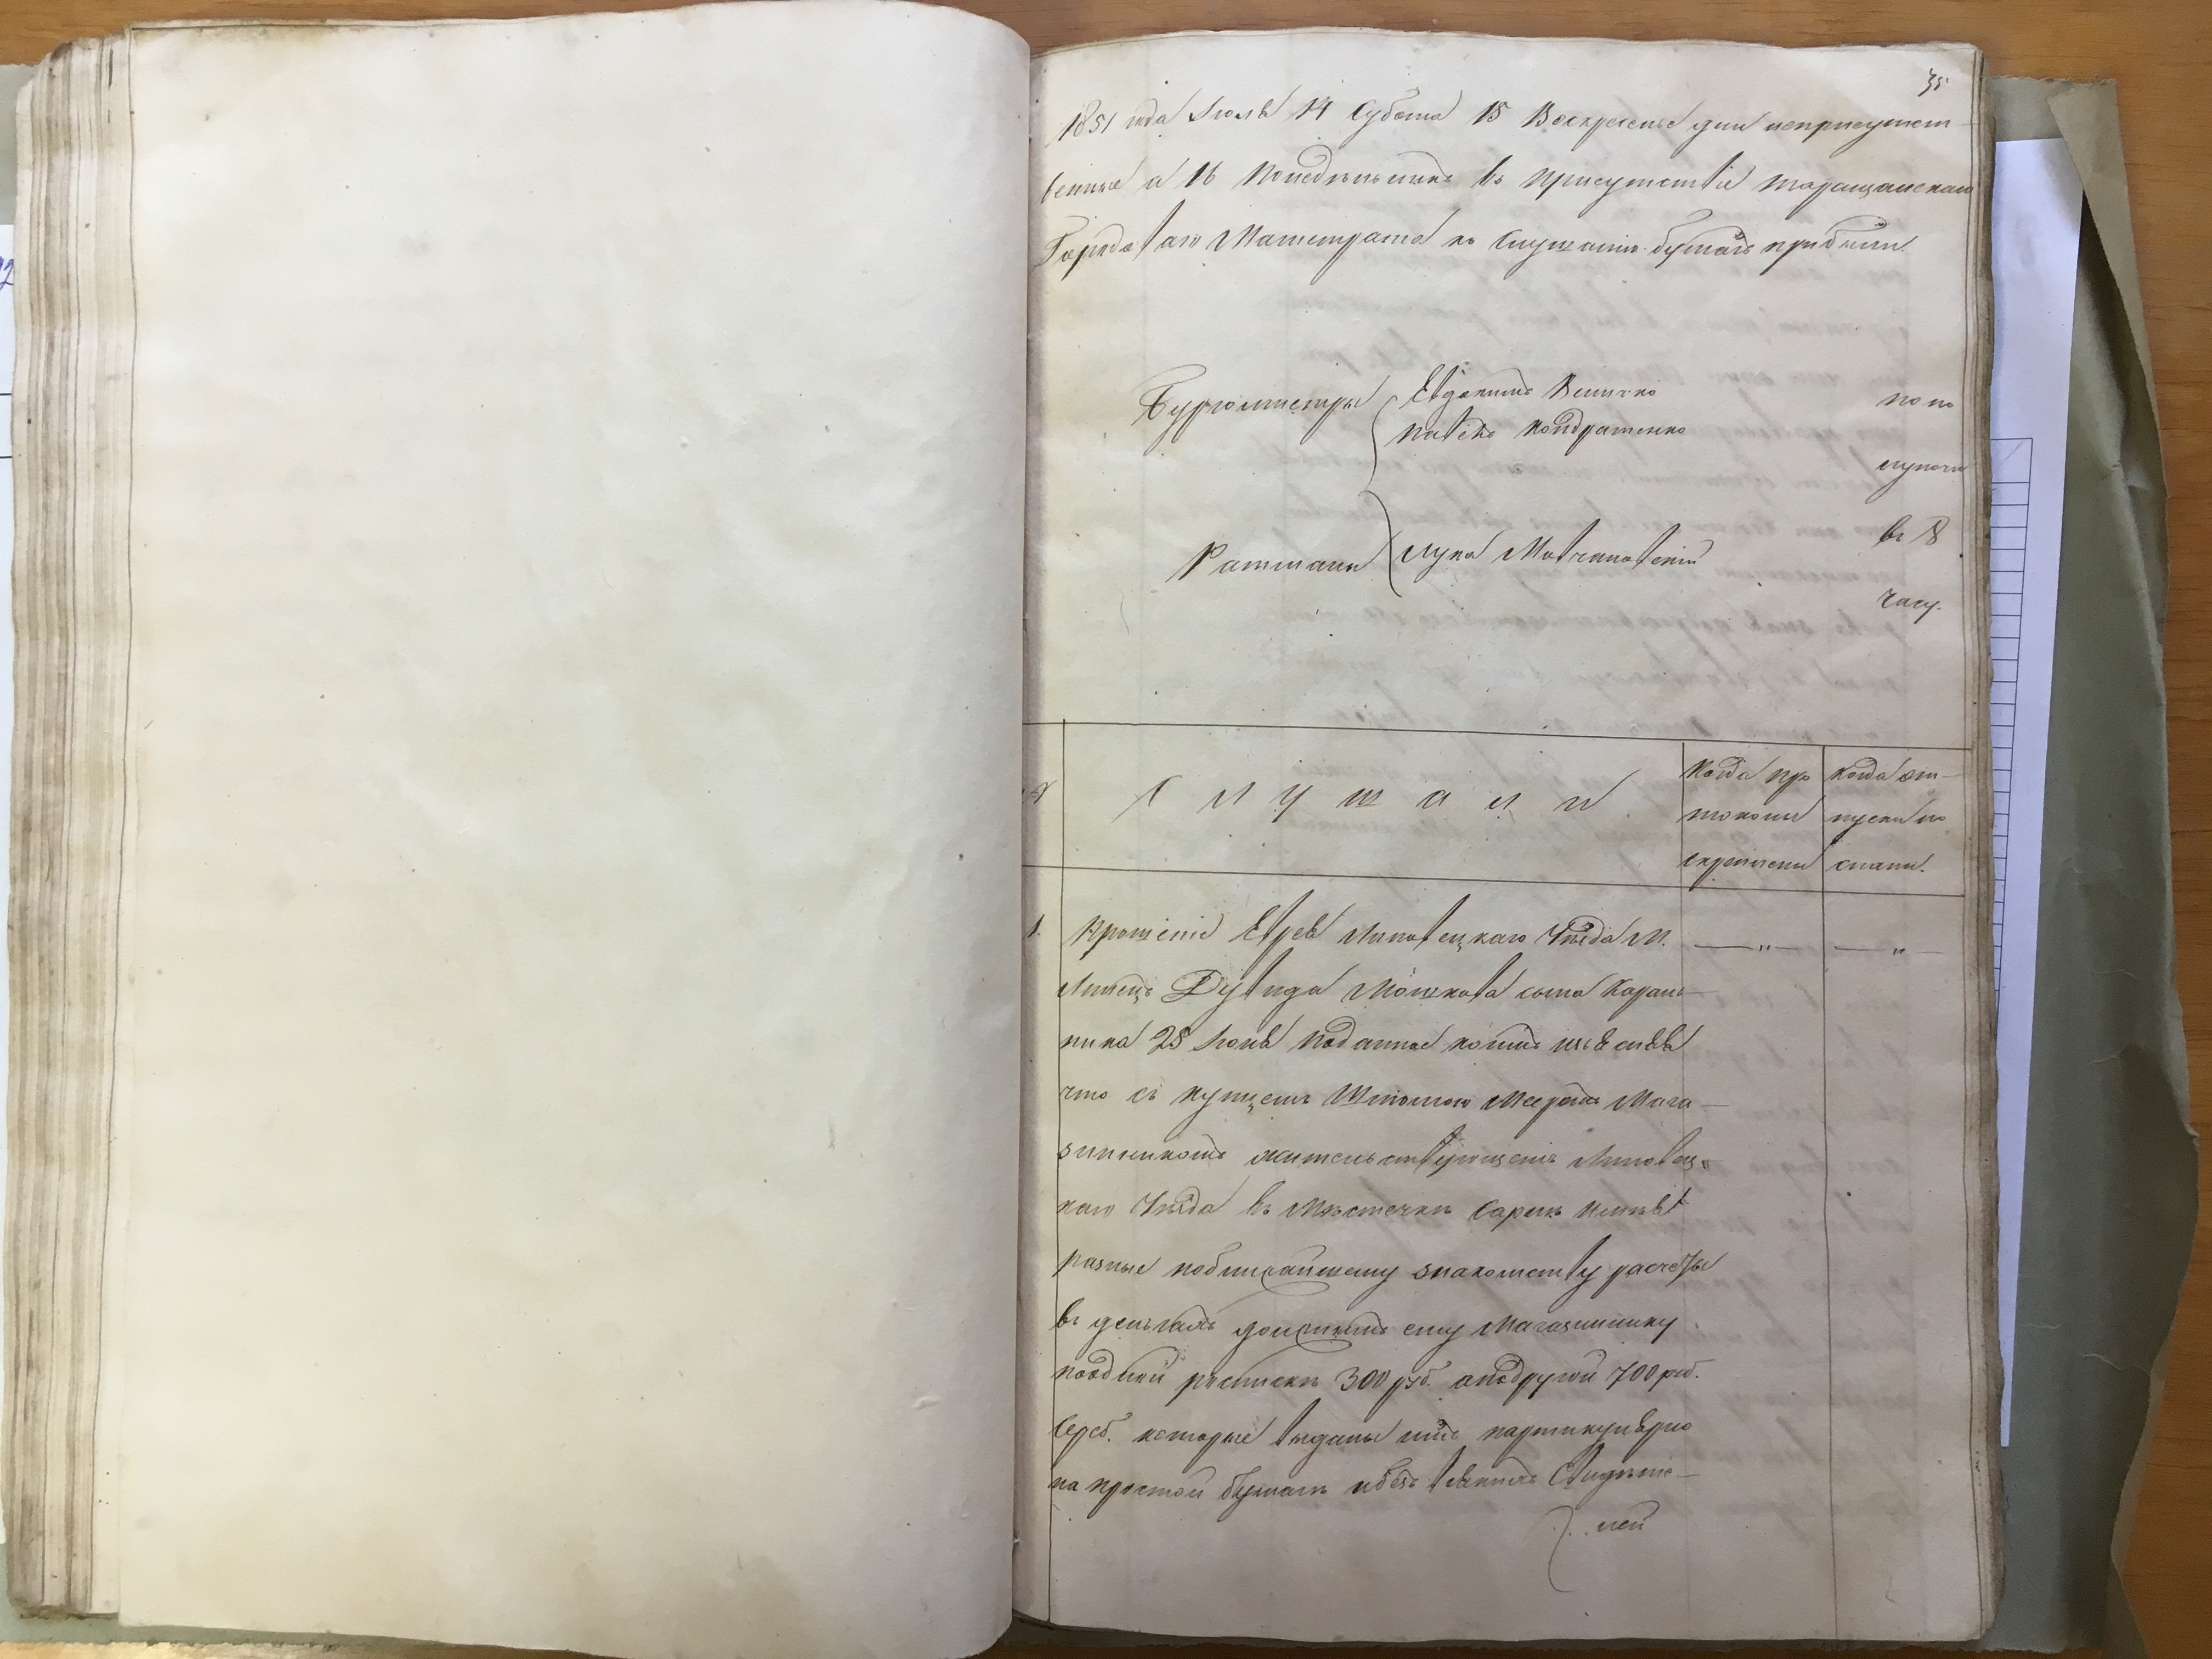 35
1851 года Іюля 14 Субота 15 Воскресенье дни неприсутст-
венные а 16 Понедѣльникъ въ присутствіе таращанскаго
Городоваго Магистрата къ слушанію бумагъ прибыли.
Бургомистры Евдокимъ
Павелъ Кондратенко
по по
луночи
Ратманъ Лука
въ 8
часу.
№ Слушали
Когда про
токолы
скреплены
когда от-
пуски по
сланы.
1. Прошеніе Еврея Липовецкаго Уѣзда М.
Линецъ Дувида Мошкова сына Каран-
ника 28 Іюня поданное коимъ изъясняя
что съ купцемъ Шліомою Мееромъ Мага-
зинникомъ жительствующемъ Липовец-
каго Уѣзда въ Мѣстечкѣ имѣя
разные по ближайшему знакомству расчеты
въ деньгахъ долженъ ему Магазиннику
по одной роспискѣ 300 руб. а по другой 700 руб.
сереб. которые выданы имъ партикулярно
на простой бумагѣ и безъ всякихъ Свидѣте-
лей